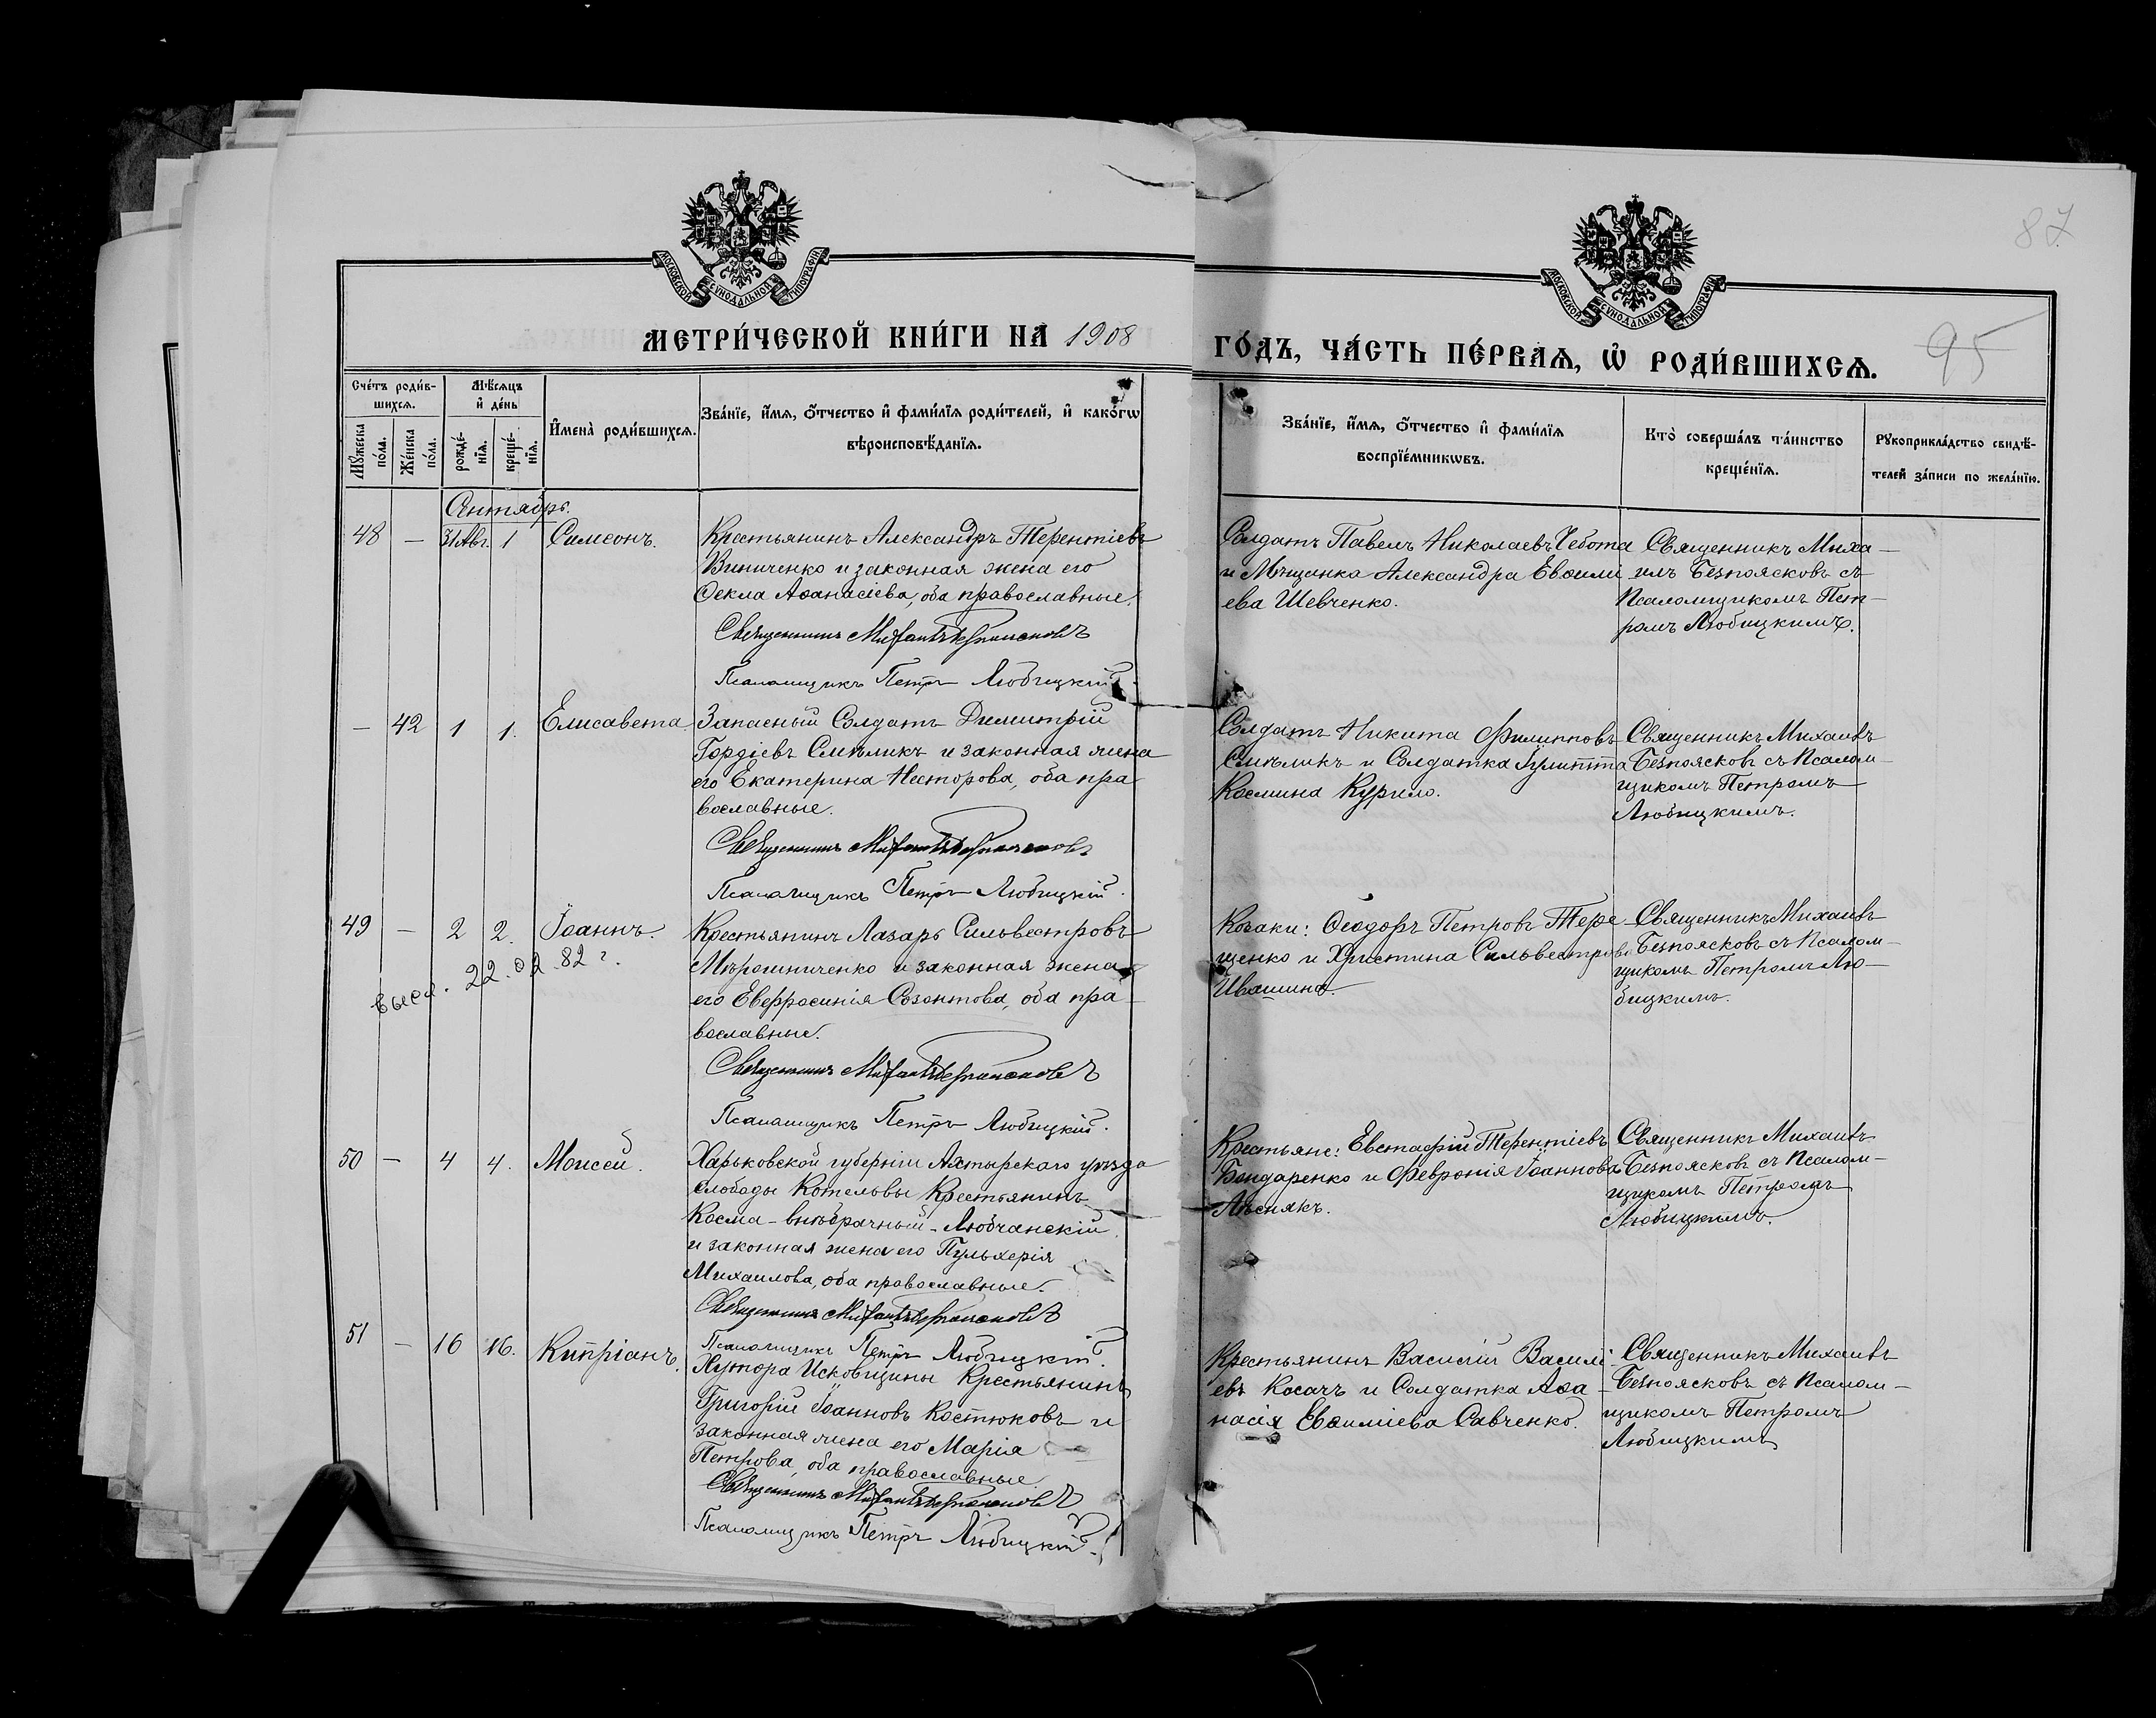 МОСКОВСКОЙ СѴНОДАЛЬНОЙ ТИПОГРАФІИ
МОСКОВСКОЙ СѴНОДАЛЬНОЙ ТИПОГРАФІИ
87
95
МЕТРИ́ЧЕСКОЙ КНИ́ГИ НА 1908
ГО́ДЪ, ЧА́СТЬ ПЕ́РВАѦ, Ѡ҆ РОДИ́ВШИХСѦ.
Сче́тъ роди́в-
шихсѧ.
Мꙋ́жеска
по́ла.
Же́нска
по́ла.
Мѣ́сѧцъ
и҆ де́нь
рожде́-
нїѧ.
креще́-
нїѧ.
И҆мена̀ роди́вшихсѧ.
Зва́нїе, и҆́мѧ, ѻ҆́тчество и҆ фами́лїѧ роди́телей, и҆ како́гѡ
вѣроисповѣ́данїѧ.
Зва́нїе, и҆́мѧ, ѻ҆́тчество и҆ фами́лїѧ
воспрїе́мникѡвъ.
Кто̀ соверша́лъ та́инство
креще́нїѧ.
Рꙋкоприкла́дство свидѣ́-
телей за́писи по жела́нїю.
Сентябрь.
48 — 31 Авг. 1 Симеонъ.
Крестьянинъ Александръ Терентіевъ
Винниченко и законная жена его
Ѳекла Аѳанасіева, оба православные.
Священникъ Михаилъ Безпоясковъ
Псаломщикъ Петръ Любицкій.
Солдатъ Павелъ Николаевъ Чебота
и Мѣщанка Александра Евѳимі
ева Шевченко.
Священникъ Миха—
илъ Безпоясковъ съ
Псаломщикомъ Пет—
ромъ Любицкимъ.
— 42 1 1. Елисавета
Запасный Солдатъ Димитрій
Гордіевъ Смѣликъ и законная жена
его Екатерина Несторова, оба пра
вославные.
Священникъ Михаилъ Безпоясковъ
Псаломщикъ Петръ Любицкій.
Солдатъ Никита Филипповъ
Смѣликъ и Солдатка Іулитта
Космина Курило.
Священникъ Михаилъ
Безпоясковъ съ Псалом—
щикомъ Петромъ
Любицкимъ.
49 — 2 2. Іоаннъ.
высл. 22.02.82 г.
Крестьянинъ Лазарь Сильвестровъ
Мѣрошниченко и законная жена
его Евфросинія Созонтова, оба пра
вославные.
Священникъ Михаилъ Безпоясковъ
Псаломщикъ Петръ Любицкій.
Козаки: Ѳеодоръ Петровъ Тере
щенко и Христина Сильвестрова
Ивашина.
Священникъ Михаилъ
Безпоясковъ съ Псалом—
щикомъ Петромъ Лю—
бицкимъ.
50 — 4 4. Моисей.
Харьковской губерніи Ахтырскаго уѣзда
слободы Котельвы Крестьянинъ
Косма-внѣбрачный-Любчанскій
и законная жена его Пульхерія
Михаилова, оба православные.
Священникъ Михаилъ Безпоясковъ
Псаломщикъ Петръ Любицкій.
Крестьяне: Евстафій Терентіевъ
Бондаренко и Февронія Іоаннова
Лѣснякъ.
Священникъ Михаилъ
Безпоясковъ съ Псалом—
щикомъ Петромъ
Любицкимъ.
51 — 16 16. Кипріанъ.
Хутора Исковщины Крестьянинъ
Григорій Іоанновъ Костюковъ и
законная жена его Марія
Петрова, оба православные
Священникъ Михаилъ Безпоясковъ
Псаломщикъ Петръ Любицкій.
Крестьянинъ Василій Василі
евъ Косачъ и Солдатка Аѳа—
насія Евѳиміева Савченко.
Священникъ Михаилъ
Безпоясковъ съ Псалом—
щикомъ Петромъ
Любицкимъ